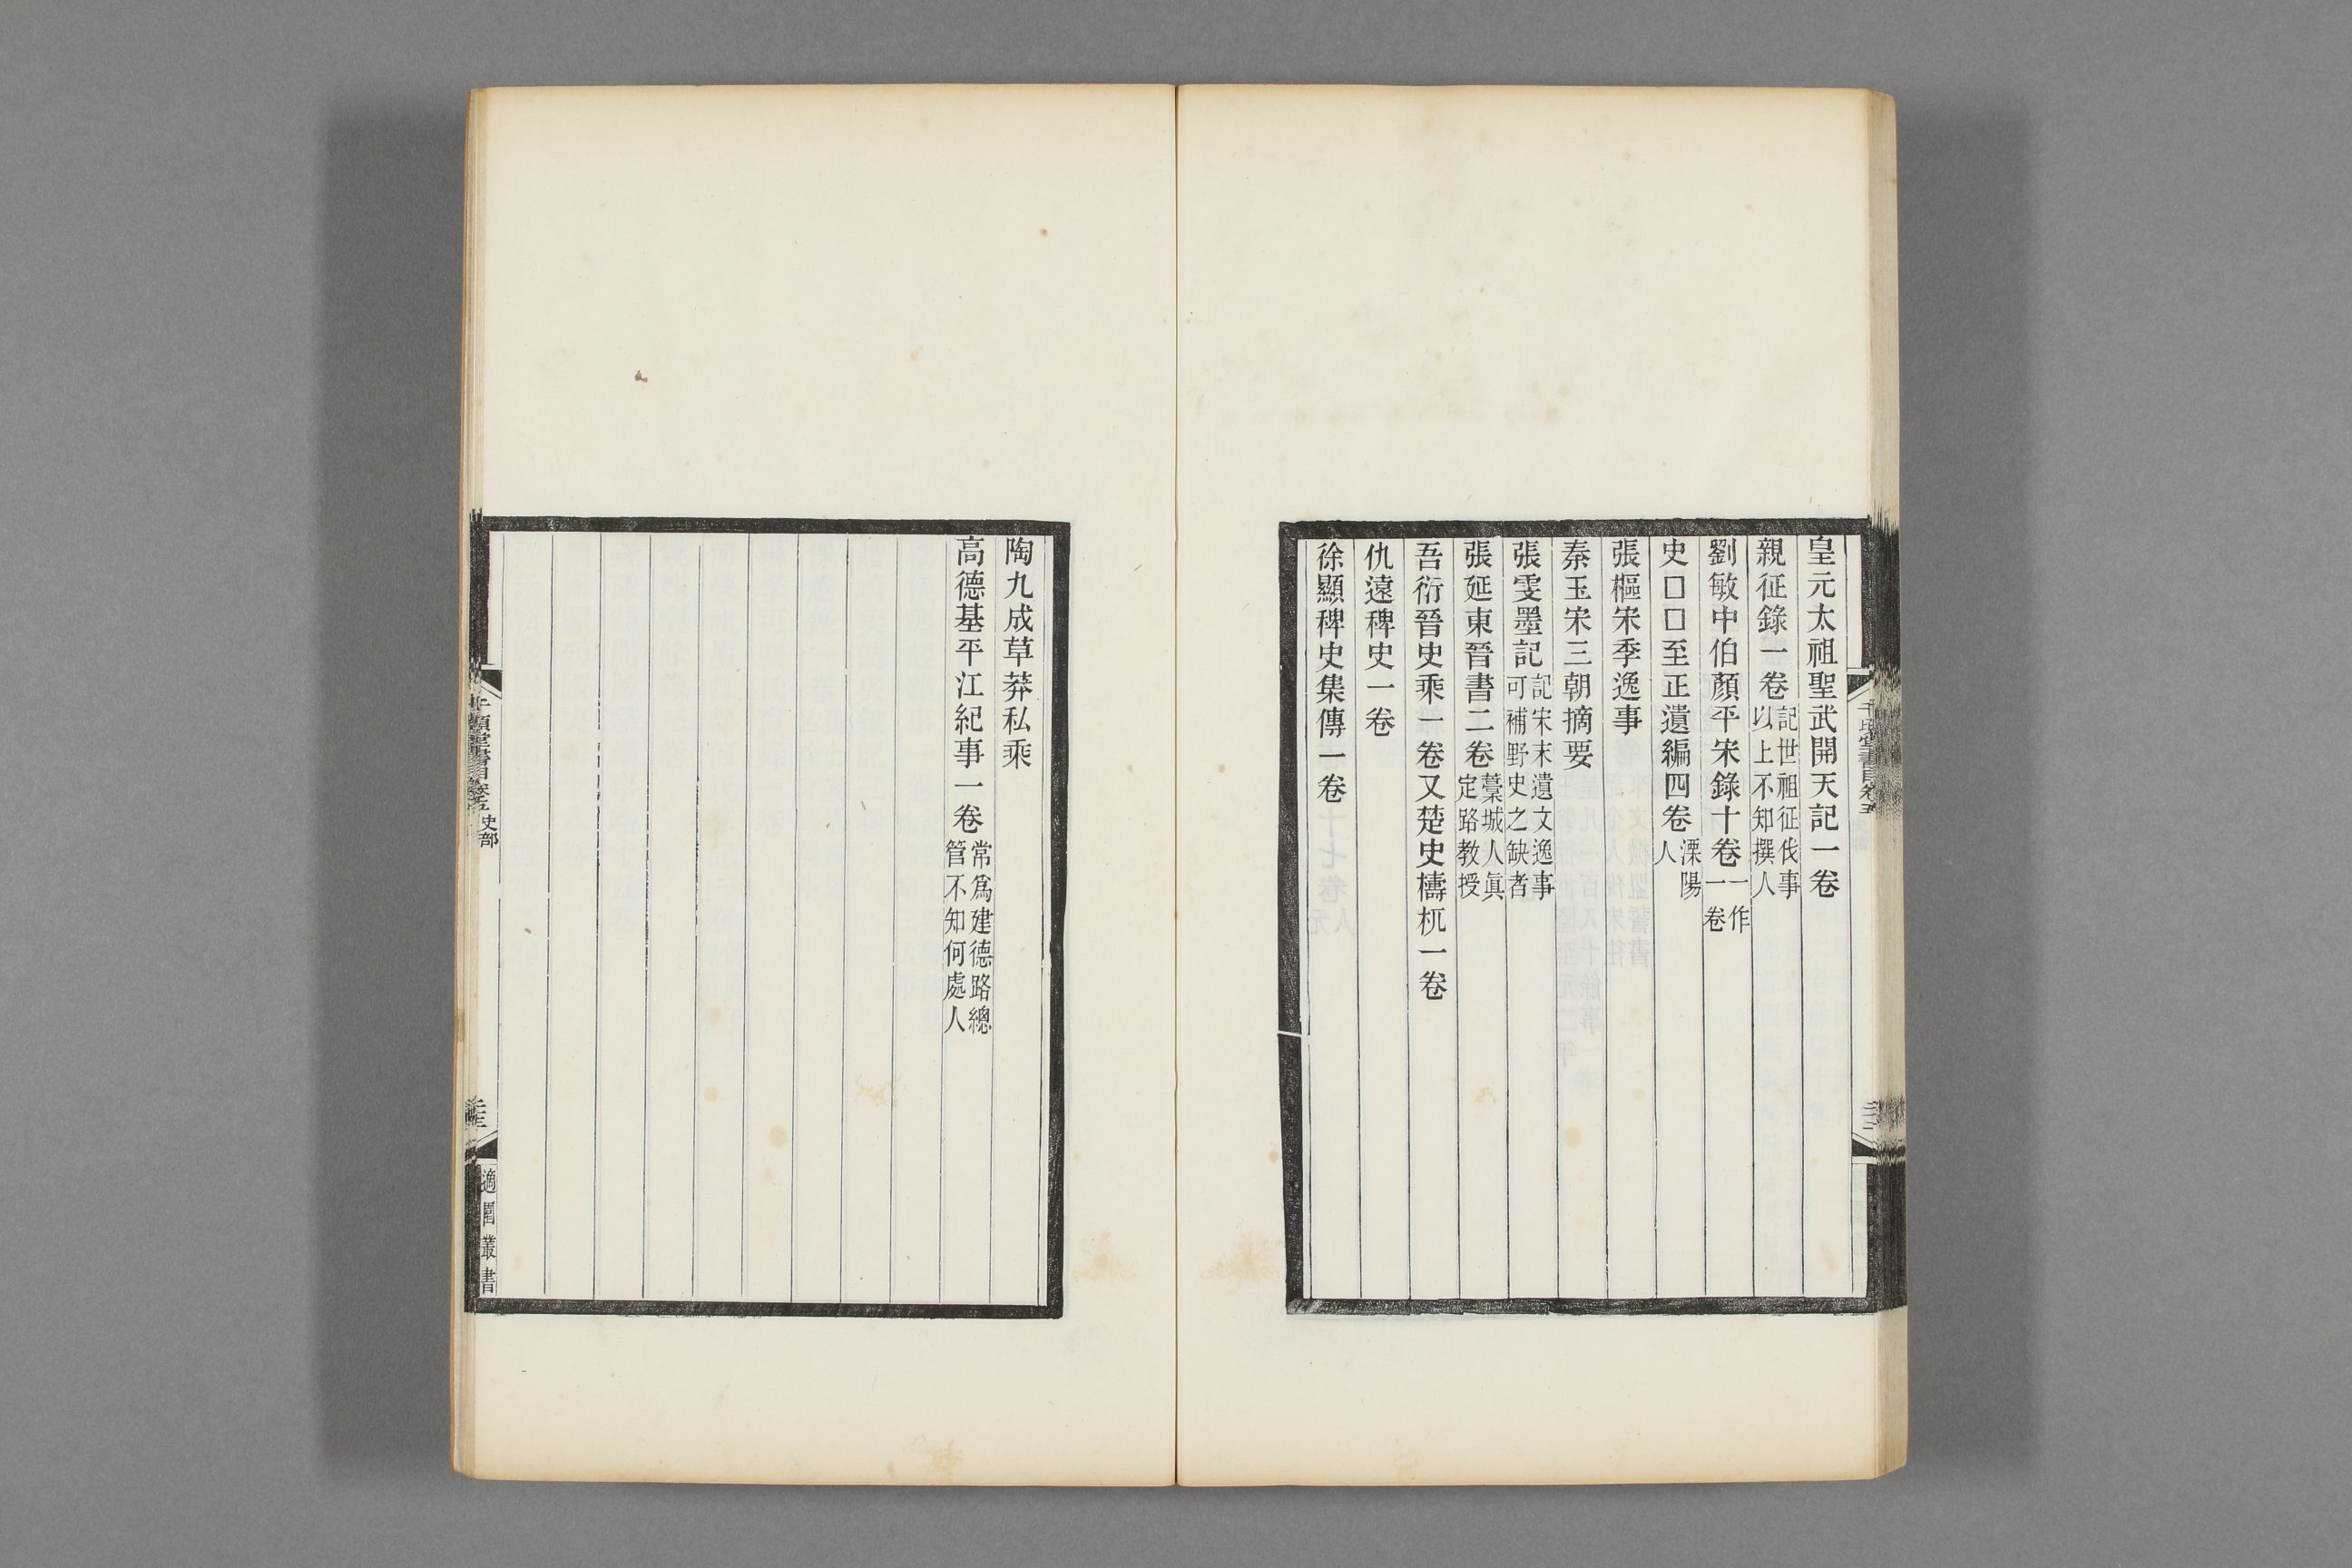 皇元太祖聖武開天記一卷
親征錄一卷記世祖征伐事以上不知撰人
劉敏中伯顏平宋錄十卷一作一卷
史□□至正遺編四卷溧陽人
張樞宋季逸事
秦玉宋三朝摘要
張雯墨記記宋末遺文逸事可補野史之缺者
張延東晉書二卷藁城人眞定路教授
吾衍晉史乘一卷又楚史檮杌一卷
仇遠稗史一卷
徐顯稗史集傳一卷
陶九成草莽私乘
高德基平江紀事一卷常爲建德路總管不知何處人
千頃堂書目卷五 史部
適園叢書